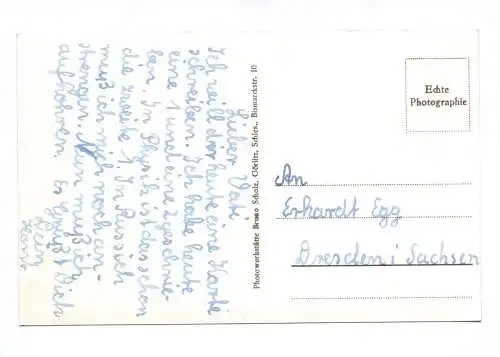 Lieber Vati
Ich will dir heute eine Karte
schreiben. Ich habe heute
eine 1 und eine 2 geschrie-
ben. In Physik ist das schon
die zweite 1. In Russisch
muß ich mich noch an-
strengen. Nun muß ich
aufhören. Es grüßt Dich
Dein
Photowerkstätte Bruno Scholz, Görlitz, Schles., Bismarckstr. 10
Echte
Photographie
An
Erhardt Egg
Dresden i Sachsen